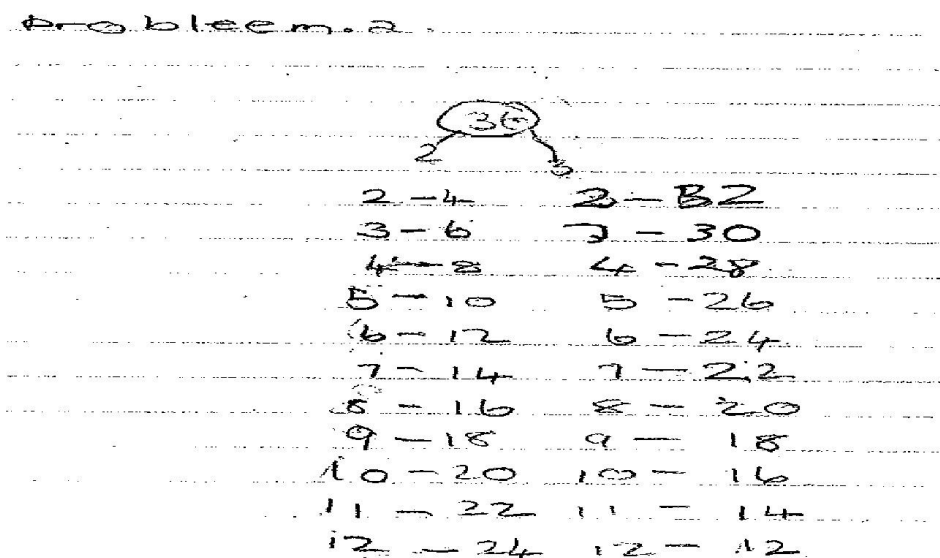 Probleem.2.
36
2 3
2 - 4 2 - 32
3 - 6 3 - 30
4 - 8 4 - 28
5 - 10 5 - 26
6 - 12 6 - 24
7 - 14 7 - 22
8 - 16 8 - 20
9 - 18 9 - 18
10 - 20 10 - 16
11 - 22 11 - 14
12 - 24 12 - 12